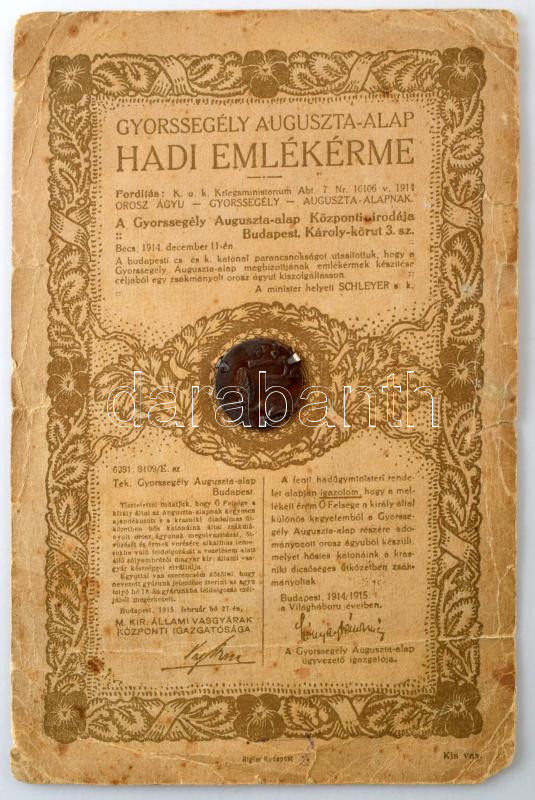 GYORSSEGÉLY AUGUSZTA-ALAP
HADI EMLÉKÉRME
Fordítás: K. u. k. Kriegsministerium Abt. 7. Nr. 16106 v. 1914
OROSZ ÁGYU — GYORSSEGÉLY — AUGUSZTA-ALAPNAK.
A Gyorssegély Auguszta-alap Központi irodája
Budapest, Károly-körut 3. sz.
Bécs, 1914. december 11-én.
A budapesti cs. és k. katonai parancsnokságot utasítottuk, hogy a
Gyorssegély Auguszta-alap megbizottjának emlékérmek készitése
céljából egy zsákmányolt orosz ágyut kiszolgáltasson.
A minister helyett SCHLEYER s. k.
darabanth
6281. 8109/E. sz.
Tek. Gyorssegély Auguszta-alap
Budapest.
Tisztelettel tudatjuk, hogy Ő Felsége a
király által az Auguszta-alapnak kegyesen
ajándékozott s a krasniki diadalmas üt-
közetben hős katonáink által zsákmá-
nyolt orosz ágyunak megolvasztását, öt-
vözését és érmek verésére alkalmas leme-
zekké való feldolgozását a vezetésem alatt
álló zólyombrézói magyar kir. állami vas-
gyár készséggel elvállalja.
Egyuttal van szerencsém közölni, hogy
nevezett gyárunk jelentése szerint az ágyu
folyó hó 18-án gyárunkba feldolgozás cél-
jából megérkezett.
Budapest, 1915. február hó 27-én,
M. KIR. ÁLLAMI VASGYÁRAK
KÖZPONTI IGAZGATÓSÁGA
A fenti hadügyministeri rende-
let alapján igazolom, hogy a mel-
lékelt érem Ő Felsége a király által
különös kegyelemből a Gyorsse-
gély Auguszta-alap részére ado-
mányozott orosz ágyuból készült,
melyet hősies katonáink a kras-
niki dicsőséges ütközetben zsák-
mányoltak.
Budapest, 1914/1915.
a Világháboru éveiben.
A Gyorssegély Auguszta-alap
ügyvezető igazgatója.
Rigler Budapest
Kis vas.